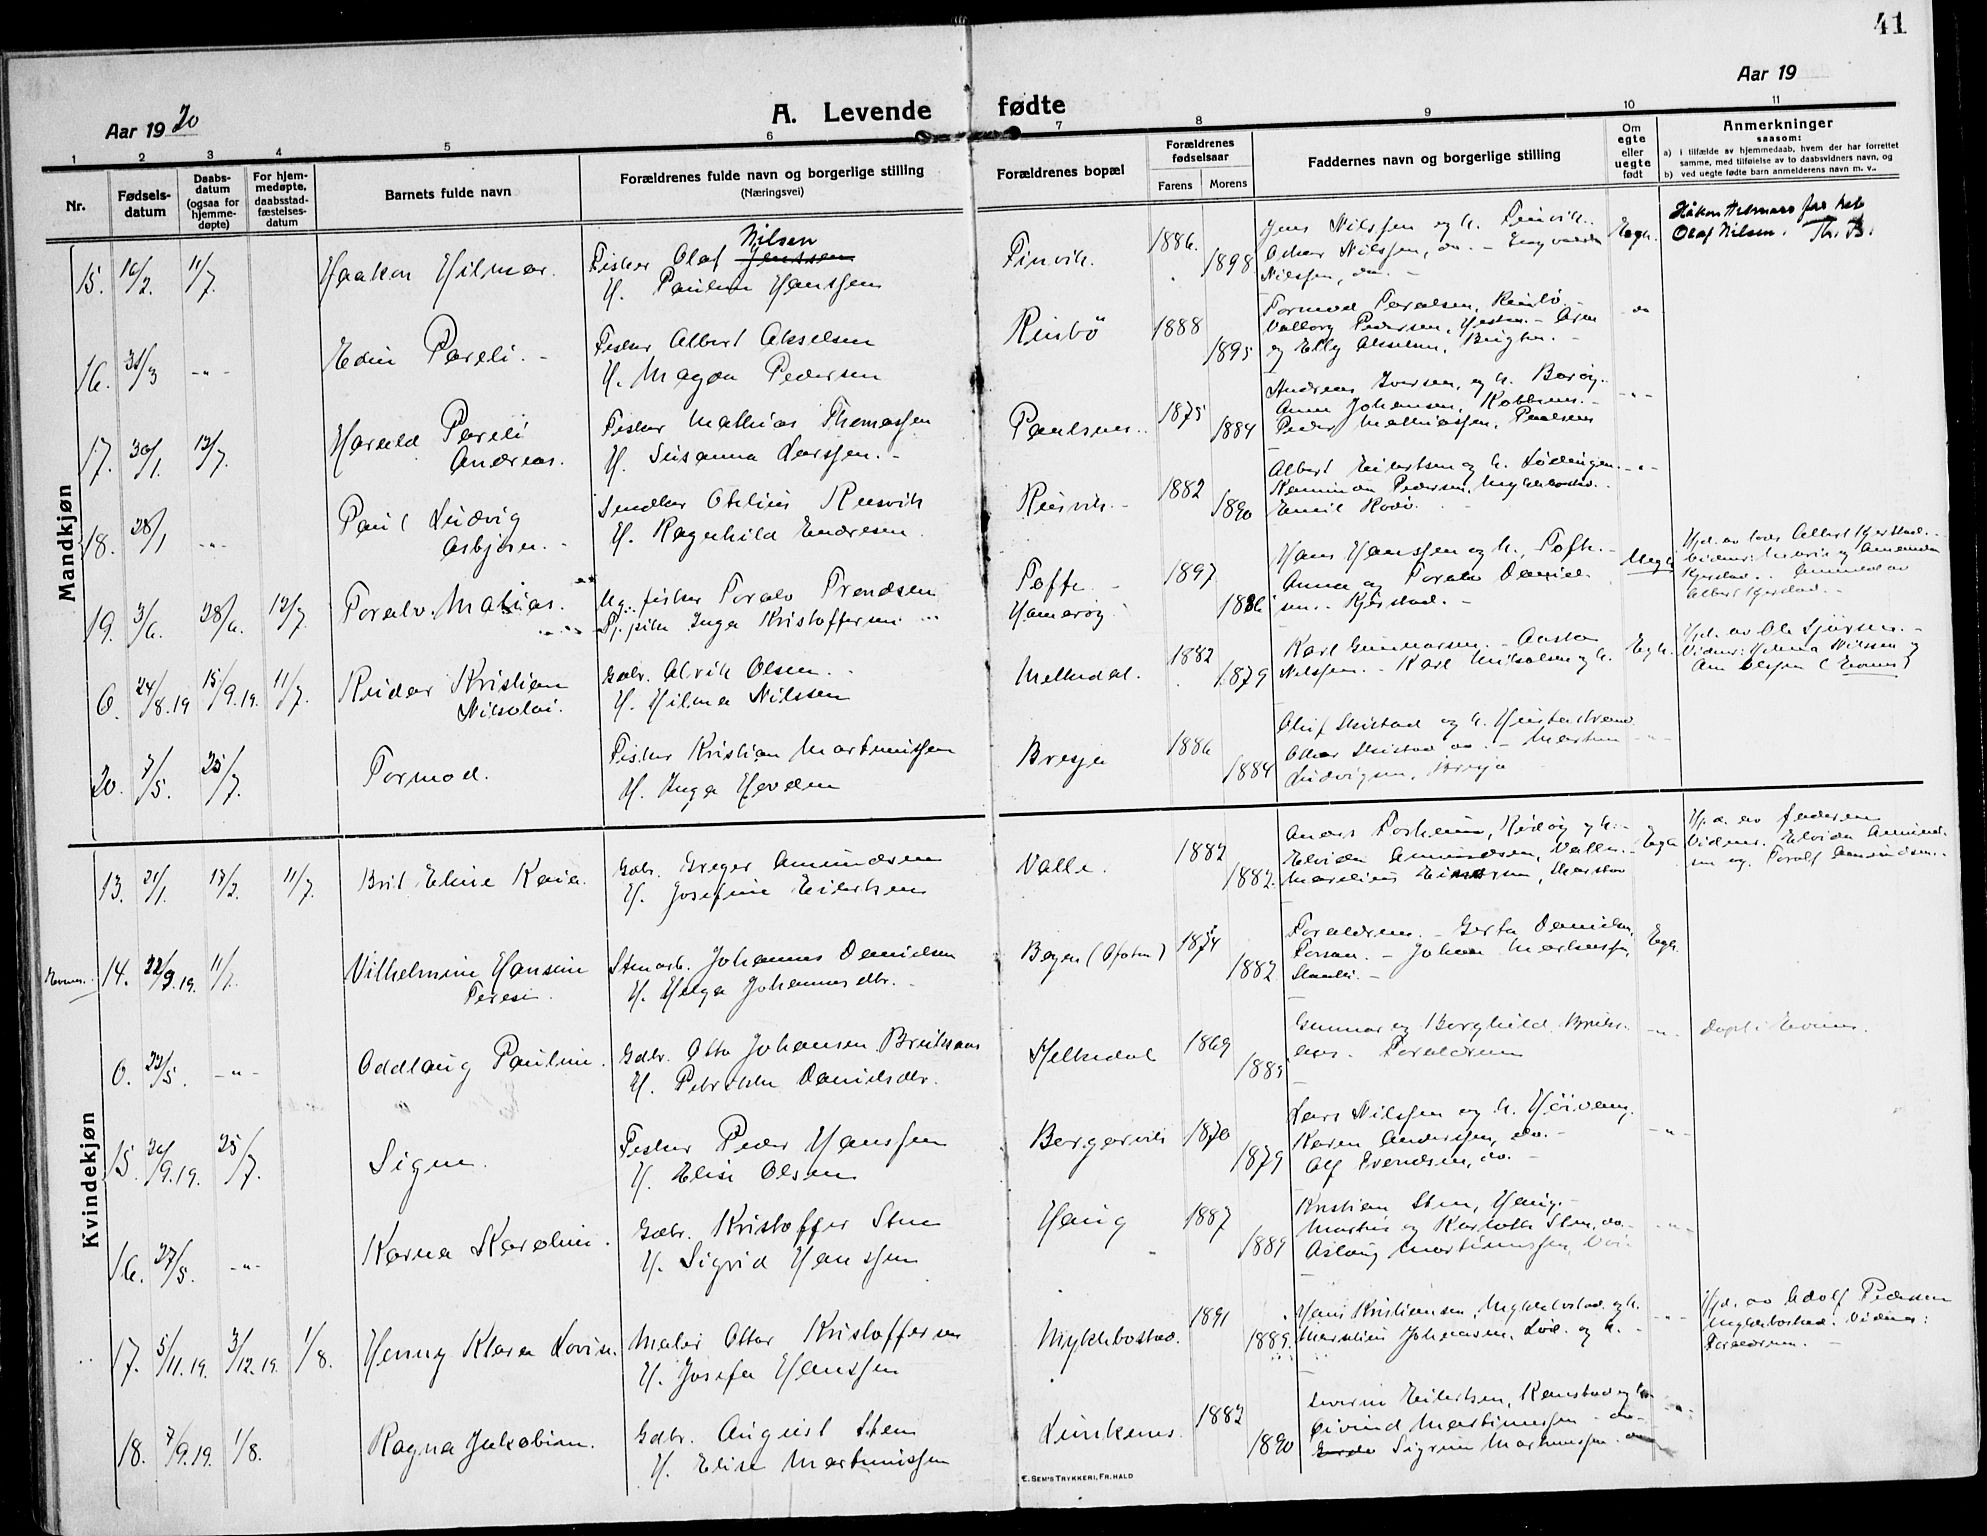 41
Aar 1920
A. Levende fødte
Aar 19
1 2 3 4 5 6 7 8 9 10 11
Nr.
Fødsels-
datum
Daabs-
datum
(ogsaa for
hjemme-
døpte)
For hjem-
medøpte,
daabsstad-
fæstelses-
datum
Barnets fulde navn
Forældrenes fulde navn og borgerlige stilling
(Næringsvei)
Forældrenes bopæl
Forældrenes
fødselsaar
Farens Morens
Faddernes navn og borgerlige stilling
Om
egte
eller
uegte
født
Anmerkninger
saasom:
a) i tilfælde av hjemmedaab, hvem der har forrettet
samme, med tilføielse av to daabsvidners navn, og
b) ved uegte fødte barn anmelderens navn m. v..
Mandkjøn
15. 16/2. 11/7. Haakon Hilmar.
Fisker Olaf Jenssen Nilsen
H. Pauline Hanssen
Finvik. 1886. 1898
Jens Nilssen og h. Finvik.
Oskar Nilssen, do. - Engvald
Nilssen, do. -
Egte.
Olaf Nilsen. Th. B.
16. 31/3 -"- Edin Pareli. -
Fisker Albert Akselsen
H. Magda Pedersen
Rinbö 1888 1895
Tormod Toralsen, Rinbö. -
Valborg Pedersen,
og Elly Akselsen,
do
17. 30/1. 13/7. Harald Pareli
Andreas.
Fisker Mathias Thomassen
H. Susanna Larssen. -
Paulsnes. 1875 1884
Andreas Iversen, og h. Barøy.
Anna Johansen, -
Peder Mathiassen, Paulsnes
-"-
18. 28/1 -"- Paul Ludvig
Asbjørn. -
H. Ragnhild Endresen.
Rusvik. - 1882 1890
Albert Eilertsen og h. Lødingen. -"-
Pedersen,
Emil Rodø.
19. 3/6. 28/6. 12/7. Toralv Matias.
Ug. fisker Toralv Trondsen
Pj. pike Inga Kristoffersen
Tofte -
Hamarøy 1897 1886
Hans Hanssen og h. Tofte. -
Anna og Toralv Daniel-
sen. Kjerstad. -
Uegte
Hjd. av Albert Kjerstad. -
Kjerstad. Anmeld av
Albert Kjerstad. -
0. 24/8.19 15/9.19. 11/7. Reidar Kristian
Nikolai.
Gdbr. Alvik Olsen.
H. Hilma Nilssen
Melkedal. 1882 1879
Karl Gunnarsen. -
Nilssen. - Karl Mikalsen og h.
Egte.
Vidner: Helma Nilssen og
(Evenes)
20. 7/5. 25/7. Tormod.
Fisker Kristian Martinussen
H. Inga Hovden
Bresja 1886 1884
Oluf Skistad og h.
Oskar Skistad do. - Martin
Ludvigsen, Bresja
-"-
Kvindekjøn
13. 21/1. 13/2. 11/7. Brit Eline Kaia.
Gdbr. Greger Amundsen
H. Josefine Eilertsen
Valle. 1882 1882.
Elvida Amundsen, Valle. -
Egte
Hjd. av faderen
Vidner. Elvida Amund-
sen og Toralf Amundsen. -
Evenes. 14. 22/9.19. 11/7. Vilhelmine Hansine
Terese.
Stenarb. Johannes Danielsen
H. Helga Johannesdtr.
Bogen (Ofoten) 1874 1882
Forældrene. - Gerta Danielsen
- Johan Martinussen,
Egte.
0. 23/5. -"- Oddlaug Pauline.
Gdbr. Otto Johansen
H. Petrikke Danielsdtr.
Melkedal 1869 1885
Gunnar og Borghild
Forældrene
-"-
Døpt i Evenes.
15. 26/9.19. 25/7. Signe.
Fisker Peder Hanssen
H. Elise Olsen
Bergsvik 1870 1879
Lars Nilssen og h.
Karen Anderssen, do. -
Alf Svendsen, do. -
-"-
16. 27/5. -"- Karna Karoline.
Gdbr. Kristoffer Sten
H. Sigrid Hanssen
Haug 1887 1889
Kristian Sten, Haug. -
Martin og Karlotte Sten, do. -
Aslaug Martinussen,
-"-
17. 5/11.19. 3/12.19. 1/8. Henny Klara Lovise.
Maler Ottar Kristoffersen
H. Josefa Hanssen
Myklebostad. 1891 1889.
Hans Kristiansen, Myklebostad. og h.
Johansen, Lød. og h. -
-"-
Hjd. av Adolf Pedersen
Myklebostad. Vidner:
Forældrene. -
18. 7/9.19. 1/8. Ragna Jakobine.
Gdbr. August Sten
H. Elise Martinussen
Leiknes. 1882 1890
Severin Eilertsen, Ramstad og h.
Øivind Martinussen do.
Sigrun Martinussen. do
-"-
E. SEM'S TRYKKERI, FR.HALD